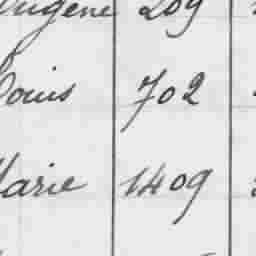 Eugène 209
Louis 702
Marie 1409